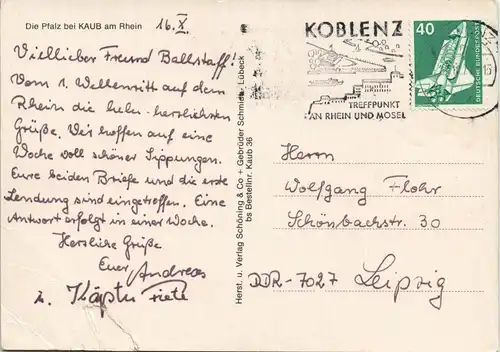 Die Pfalz bei KAUB am Rhein
16.X.
Viellieber Freund Ballstaff!
Vom 1. Wellenritt auf dem
Rhein die helm-herzlichsten
Grüße. Wir hoffen auf eine
Woche voll schöner Sippungen.
Eure beiden Briefe und die erste
Sendung sind eingetroffen. Eine
Antwort erfolgt in einer Woche.
Herzliche Grüße
Euer Andreas
Käptn
Herst. u. Verlag Schöning & Co + Gebrüder Schmidt, Lübeck
bs Bestellnr. Kaub 36
KOBLENZ
TREFFPUNKT
AN RHEIN UND MOSEL
40
DEUTSCHE BUNDESPOST
Herrn
Wolfgang Flohr
Schönbachstr. 30
DDR-7027 Leipzig